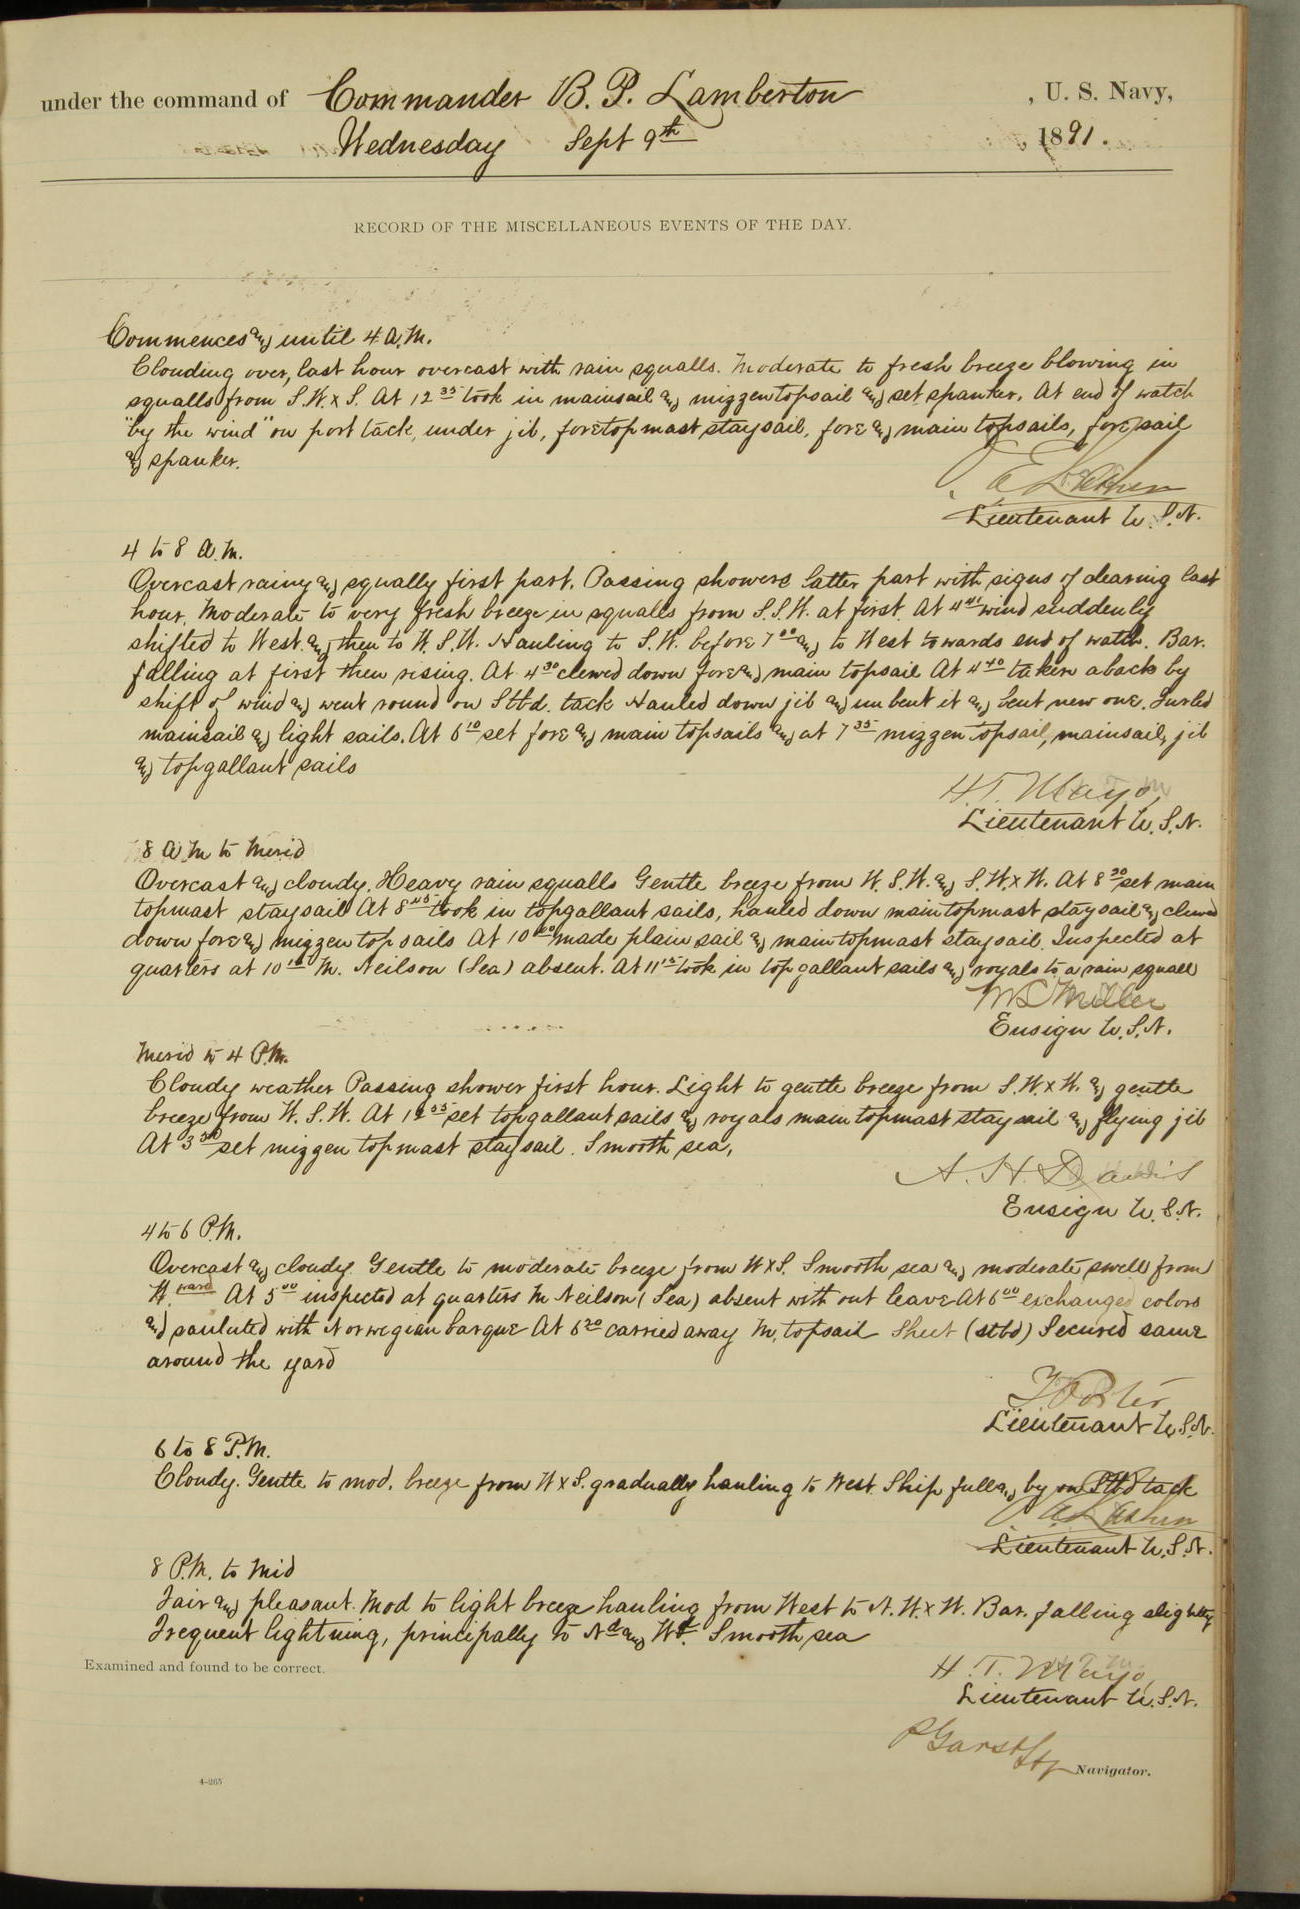 under the command of Commander B. P. Lamberton , U. S. Navy,
Wednesday Sept 9th 1891.
RECORD OF THE MISCELLANEOUS EVENTS OF THE DAY.
Commences and until 4 A.M.
Clouding over, last hour overcast with rain squalls. Moderate to fresh breeze blowing in
squalls from S.W. x S. At 12 35 took in mainsail and mizzen topsail and set spanker. At end of watch
"by the wind" on port tack, under jib, foretopmast staysail, fore and main topsails, fore sail
and spanker.
Lieutenant U.S.N.
4 to 8 A.M.
Overcast rainy and squally first part. Passing showers latter part with signs of clearing last
hour. Moderate to very fresh breeze in squalls from S.S.W. at first. At 4 wind suddenly
shifted to West. and then to W.S.W. Hauling to S.W. before 7 00 and to West towards end of watch. Bar.
falling at first then rising. At 4 30 clewed down fore and main topsail At 4 40 taken aback by
shift of wind and went round on Stbd. tack Hauled down jib and unbent it and bent new one. Furled
mainsail and light sails. At 6 10 set fore and main topsails and at 7 35 mizzen topsail, mainsail, jib
and topgallant sails
H.T. Mayo,
Lieutenant U.S.N.
8 A M to Merid
Overcast and cloudy. Heavy rain squalls Gentle breeze from W.S.W. and S.W. x W. At 8 30 set main
topmast staysail At 8 45 took in topgallant sails, hauled down maintopmast staysail and clewed
down fore and mizzen topsails At 10 made plain sail and maintopmast staysail. Inspected at
quarters at 10 M. Neilson (Sea) absent. At 11 15 took in topgallant sails and royals to a rain squall
Miller
Ensign U.S.N.
Merid to 4 P.M.
Cloudy weather Passing shower first hour. Light to gentle breeze from S.W. x W. and gentle
breeze from W.S.W. At 12 35 set topgallant sails and royals main topmast staysail and flying jib
At 3 set mizzen topmast staysail. Smooth sea,
A. H. Davis
Ensign U.S.N.
4 to 6 P.M.
Overcast and cloudy. Gentle to moderate breeze from W x S. Smooth sea and moderate swell from
W. ward At 5 00 inspected at quarters M Neilson (Sea) absent with out leave At 6 00 exchanged colors
and saluted with Norwegian barque At 6 20 carried away M. topsail Sheet (stbd) Secured same
around the yard
Lieutenant U.S.N.
6 to 8 P.M.
Cloudy. Gentle to mod. breeze from W x S. gradually hauling to West. Ship full and by on Stbd tack
Lieutenant U.S.N.
8 P.M. to Mid
Fair and pleasant. Mod to light breeze hauling from West to N.W. x W. Bar. falling slightly
Frequent lightning, principally to Nd and Wd. Smooth sea
Examined and found to be correct.
H. T. Mayo,
Lieutenant U.S.N.
P Garst
Navigator.
4-265